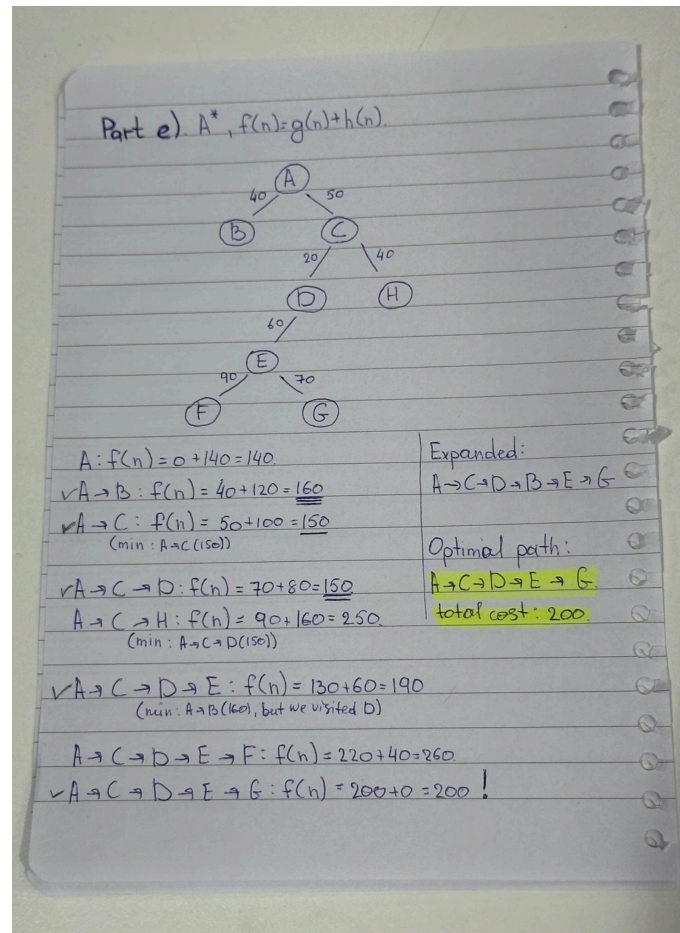 Part e). A*, f(n)=g(n)+h(n).
A
40
50
B
C
20
40
D
H
60
E
90
70
F
G
A: f(n) = 0+140 = 140.
✓A→B : f(n) = 40+120 = 160
✓A→C : f(n) = 50+100 = 150
(min : A→C(150))
✓A→C→D: f(n) = 70+80=150
A→C→H: f(n) = 90+160=250.
(min : A→C→D(150))
✓A→C→D→E: f(n) = 130+60=190
(min: A→B(160), but we visited D)
A→C→D→E→F: f(n)=220+40=260.
✓A→C→D→E→G: f(n) = 200+0=200 !
Expanded:
A→C→D→B→E→G
Optimal path:
A→C→D→E→G.
total cost: 200.